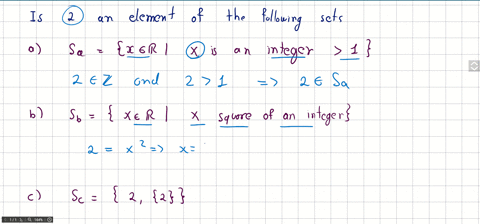 Is 2 an element of the following sets
a) Sa = {x∈ℝ | x is an integer > 1}
2 ∈ ℤ and 2 > 1 => 2 ∈ Sa
b) Sb = { x∈ℝ | x square of an integer}
2 = x² => x=
c) Sc = { 2, {2}}